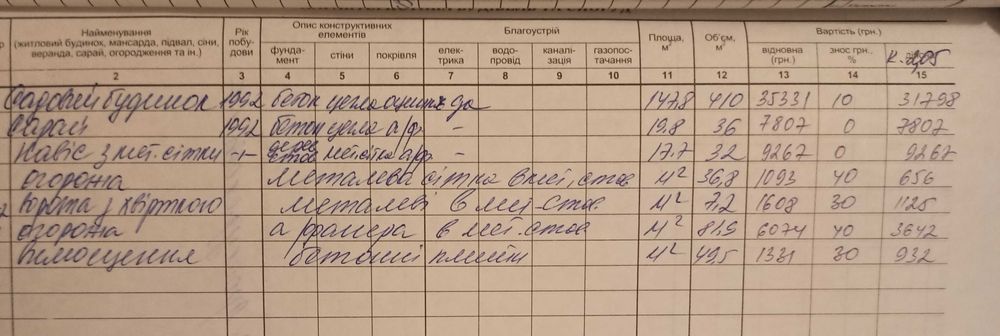 Найменування
(житловий будинок, мансарда, підвал, сіни,
веранда, сарай, огородження та ін.)
Рік
побу-
дови
Опис конструктивних
елементів
фунда-
мент
стіни
покрівля
Благоустрій
елек-
трика
водо-
провід
каналі-
зація
газопос-
тачання
Площа,
м²
Об'єм,
м³
Вартість (грн.)
відновна
(грн.)
знос грн.,
%
2 3 4 5 6 7 8 9 10 11 12 13 14 15
Садовий будинок 1992 бетон цегла да 147,8 410 35331 10 31798
Сарай 1992 бетон цегла а/ф - 19.8 36 7807 0 7807
Навіс з мет. сітки -"- мет.сітка а/ф - 17.7 32 9267 0 9267
огорожа металева сітка в мет. стов. м² 36,8 1093 40 656
Ворота з хвірткою металеві в мет. стов. м² 7.2 1608 30 1125
огорожа а/фанера в мет. стов м² 81,5 6074 40 3642
Вимощення бетонні плити м² 49,5 1331 30 932